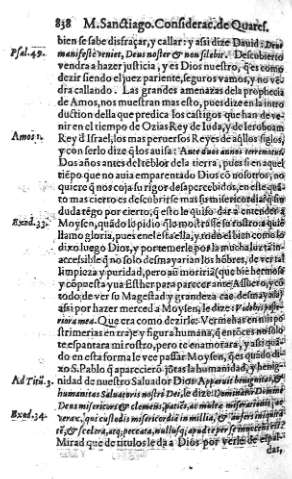 838 M. Sanctiago. Considerac. de Quares.
bien se sabe disfraçar, y callar: y assi dize Dauid: Deus
Psal. 49. manifestè veniet, Deus noster & non silebit. Descubierto
vendra a hazer justicia, y es Dios nuestro, q̃ es como
dezir siendo el juez pariente, seguros vamos, y no vē
dra callando. Las grandes amenazas de la prophecia
de Amos, nos muestran mas esto, pues dize en la intro
duction della que predica los castigos que han de ve-
nir en el tiempo de Ozias Rey de Iuda, y de Ieroboam
Amos 1. Rey d Israel, los mas peruersos Reyes de aq̃llos siglos,
y con serlo dize q̃ los auisa: Ante duos annos terremotus
Dos años antes del tēblor dela tierra, pues si en aquel
tiēpo que no auia emparentado Dios cō nosotros, no
quiere q̃ nos coja su rigor desapercebidos, en este
to mas cierto es descubrirse mas su misericordia
duda rêgo por cierto, q̃ esto le quiso dar a entender a
Exod. 33. Moysen, quādo lo pidio q̃ lo mostrasse su rostro: a quiē
llamo gloria, pues enel està ella, y respōdiō bien como lo
dixo luego Dios, y por temerle por la mucha luz tā in-
accessible q̃ no solo desmayarian los hōbres, de ver tal
limpieza y puridad, pero aū moririā (que biē hermosa
y cōpuesta yua Esther para parecer ante Assuero, y cō
todo, de ver su Magestad y grandeza cae desmayada)
assi por hazer merced a Moysen, le dize: Videbis poste-
riora mea. Que era como dezirle: Vermehas en mis po
strimerias en traje y figura humana, q̃ entōces no solo
te espantara mi rostro, pero te enamorara, y assi quā-
do en esta forma le vee passar Moysen, q̃ es quādo di-
xo S. Pablo q̃ aparecio jūtas la humanidad, y benig-
Ad Titū. 3. nidad de nuestro Saluador Dios Apparuit benignitas, &
humanitas Saluatoris nostri Dei, le dize: Dominator Domine
Deus misericors & clemens, patiens, ac multæ miserationis, ac
Exod. 34. verax, qui custodis misericordiam in millia, & aufers iniquita
tē, & scelera, atq; peccata, nullusq; apud te per se innocens est.
Mirad que de titulos le da a Dios por verle de espal-
das,